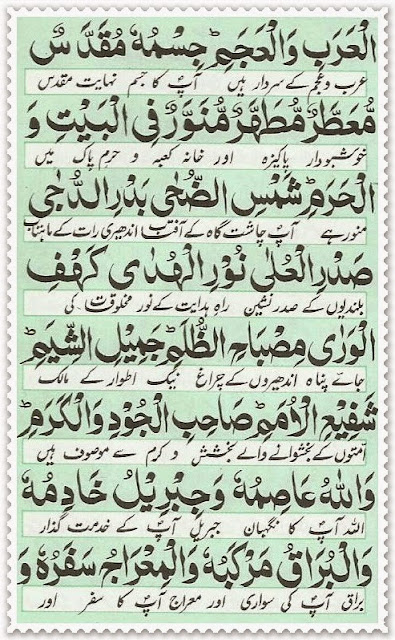 الْعَرَبِ وَالْعَجَمِؕ جِسْمُهٗ مُقَدَّسٌ
عرب و عجم کے سردار ہیں آپؐ کا جسم نہایت مقدس
مُّعَطَّرٌ مُّطَهَّرٌ مُّنَوَّرٌ فِی الْبَیْتِ وَ
خوشبودار پاکیزہ اور خانہ کعبہ و حرم پاک میں
الْحَرَمِؕ شَمْسِ الضُّحٰی بَدْرِ الدُّجٰی
منور ہے آپؐ چاشت گاہ کے آفتاب اندھیری رات کے ماہتاب
صَدْرِ الْعُلٰی نُوْرِ الْهُدٰی كَهْفِ
بلندیوں کے صدر نشین راہِ ہدایت کے نور مخلوقات کی
الْوَرٰی مِصْبَاحِ الظُّلَمِؕ جَمِیْلِ الشِّیَمِؕ
جائے پناہ اندھیروں کے چراغ نیک اطوار کے مالک
شَفِیْعِ الْاُمَمِؕ صَاحِبِ الْجُوْدِ وَالْكَرَمِؕ
اُمتوں کے بخشوانے والے بخشش و کرم سے موصوف ہیں
وَاللّٰهُ عَاصِمُهٗ وَجِبْرِیْلُ خَادِمُهٗ
اللہ آپؐ کا نگہبان جبریلؑ آپؐ کے خدمت گذار
وَالْبُرَاقُ مَرْكَبُهٗ وَالْمِعْرَاجُ سَفَرُهٗ وَ
براق آپؐ کی سواری اور معراج آپؐ کا سفر اور